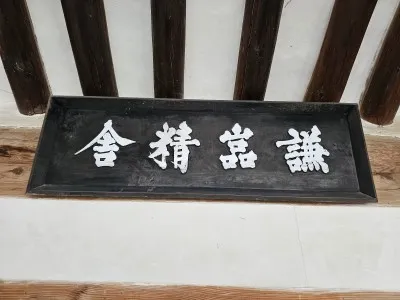 謙嵓精舍